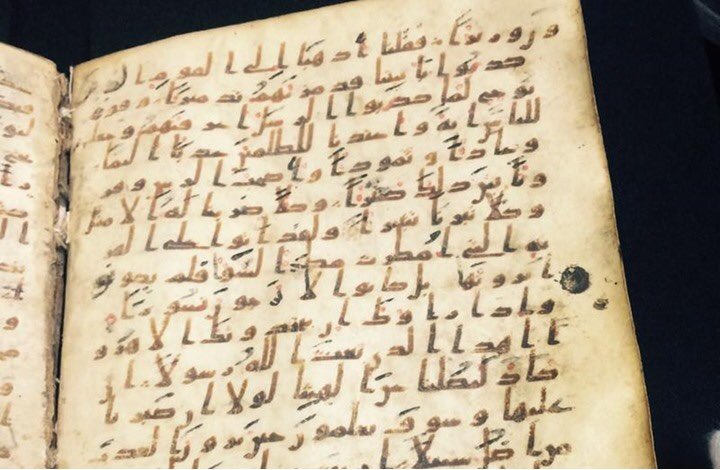 وزيرا فقلنا اذهبا الى القوم الذين
كذبوا بايتنا فدمرنهم تدميرا وقوم
نوح لما كذبوا الرسل اغرقنهم وجعلنهم
للناس اية واعتدنا للظلمين عذابا اليما
وعادا وثمودا واصحب الرس وقرو
نا بين ذلك كثيرا وكلا ضربنا له الامثل
وكلا تبرنا تتبيرا ولقد اتوا على القر
ية التي امطرت مطر السوء افلم يكونو
ا يرونها بل كانوا لا يرجون نشورا
واذا راوك ان يتخذونك الا هزو
ا اهذا الذي بعث الله رسولا ان
كاد ليضلنا عن الهتنا لولا ان صبرنا
عليها وسوف يعلمون حين يرون العذب
من اضل سبيلا